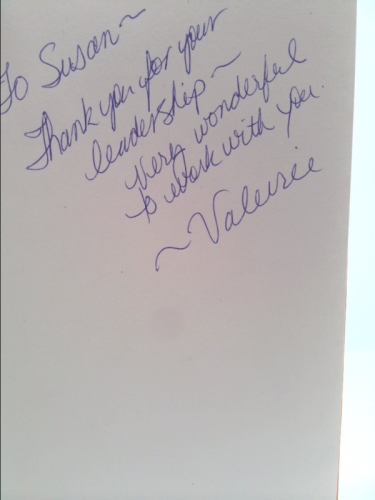 To Susan~
Thank you for your
leadership~
very wonderful
to work with you.
~Valerie